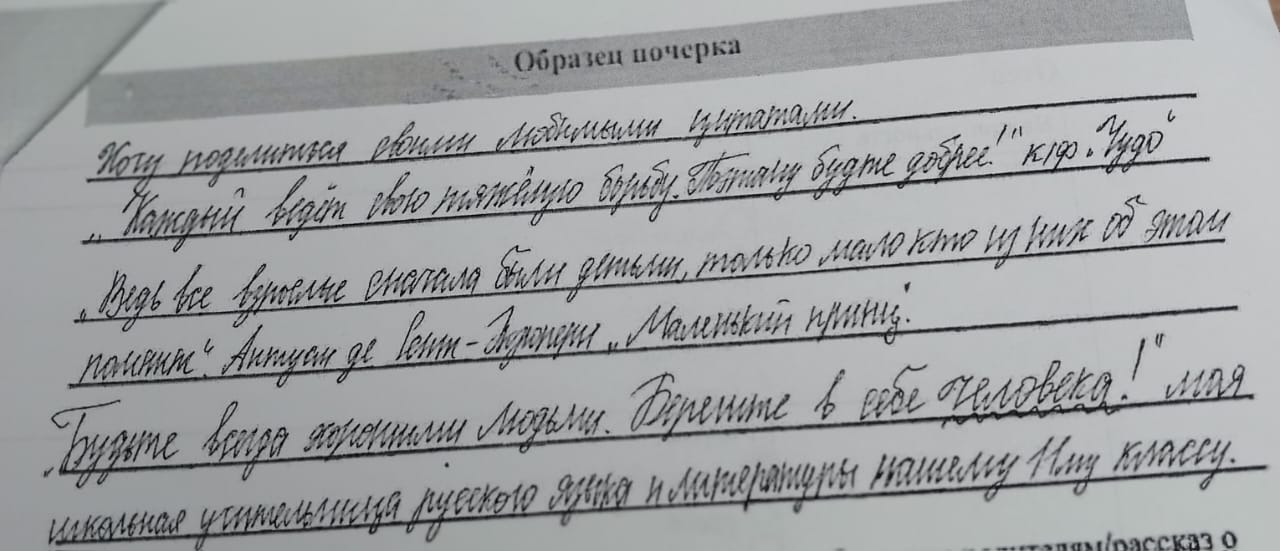 Образец почерка
Хочу поделиться своими любимыми цитатами.
„Каждый ведёт свою тяжёлую борьбу. Поэтому будте добрее!" к/ф „Чудо"
„Ведь все взрослые сначала были детьми, только мало кто из них об этом
помнит". Антуан де Сент-Экзюпери „Маленький принц".
„Будьте всегда хорошими людьми. Берегите в себе человека!" моя
школьная учительница русского языка и литературы нашему 11му классу.
/рассказ о